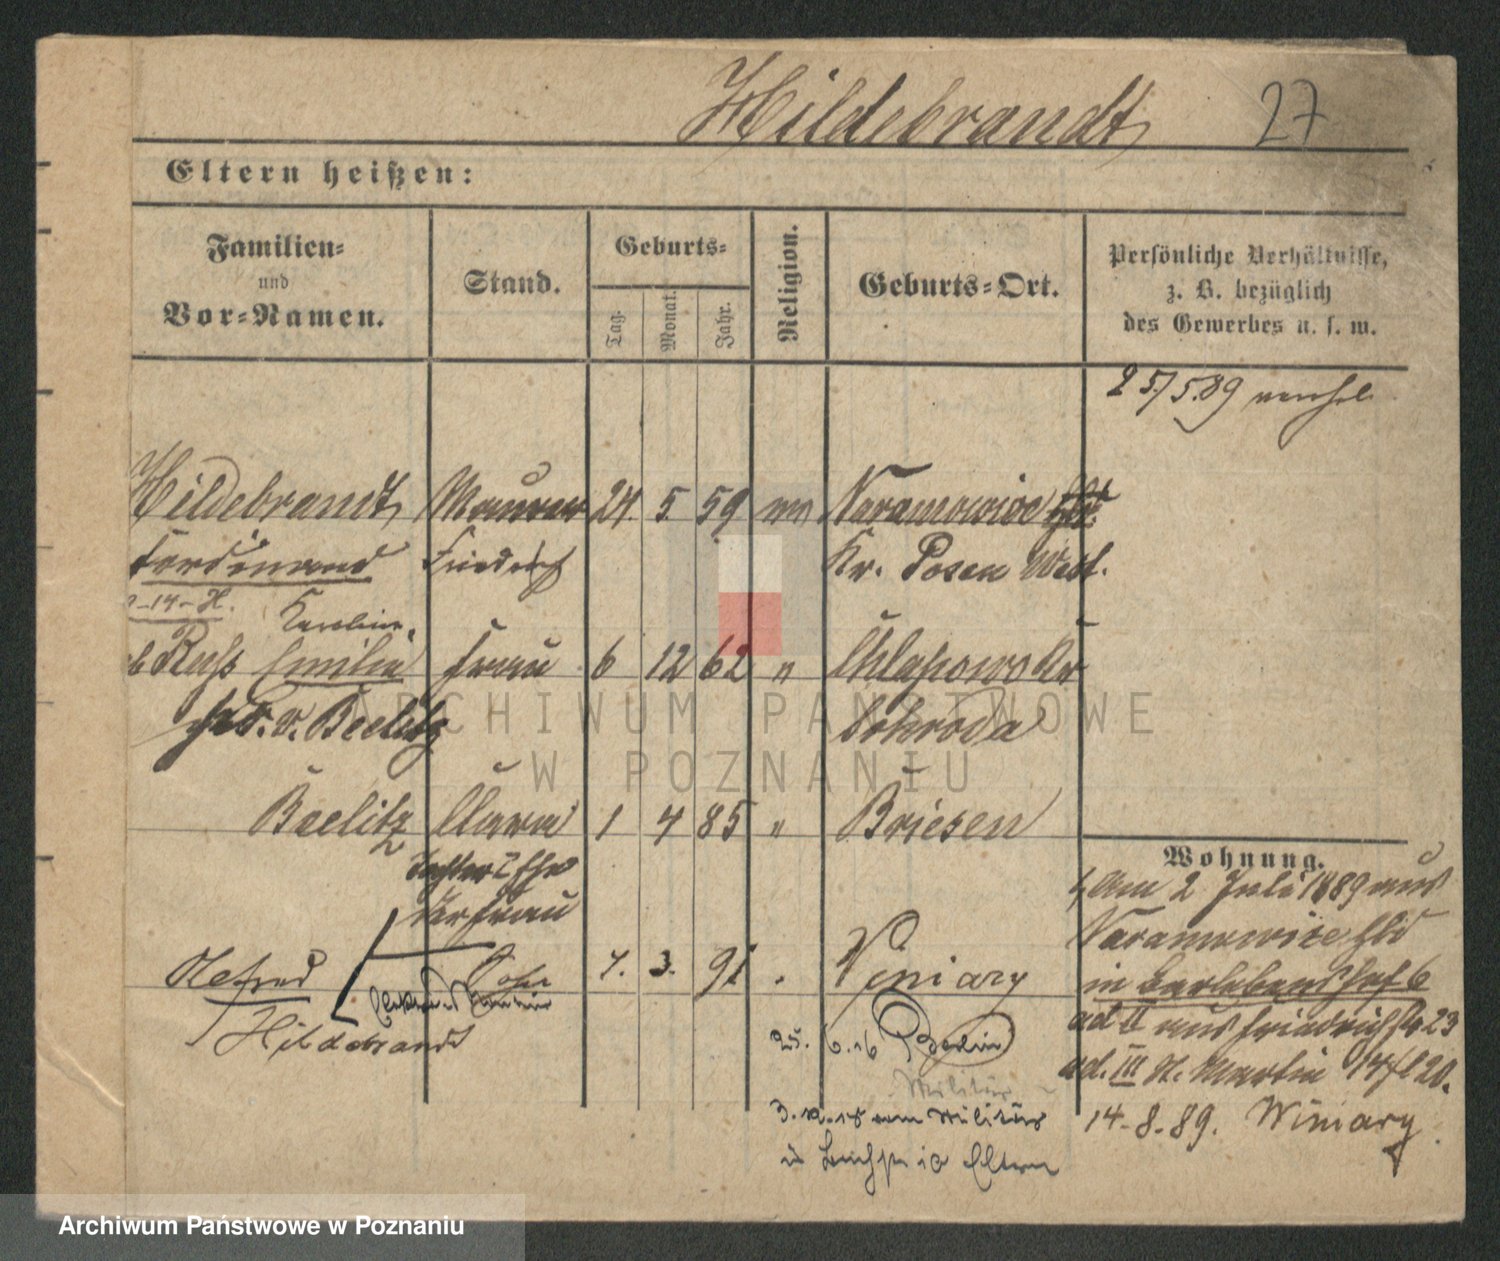 Hildebrandt 27
Eltern heißen:
Familien-
und
Vor-Namen.
Stand.
Geburts-
Tag.
Monat.
Jahr.
Religion.
Geburts-Ort.
Persönliche Verhältnisse,
z. B. bezüglich
des Gewerbes u. s. w.
25/5.89
Hildebrandt Maurer 24. 5 59 Naramowice
Ferdinand Friedrich Kr. Posen West.
-14-H. Karolin.
Russ Emilie Frau 6 12 62 " Chlapowo Kr
geb. v. Beelitz Schroda
Beelitz Clara 1 4 85 " Briesen
Tochter
der Frau
Alfred Sohn 7. 3. 91 Winiary
Hildebrandt
25. 6.16 Berlin
Militär
3.12.18 vom Militär
Eltern
Wohnung.
Am 2 Juli 1889 aus
Naramowice
in Berlebenshof 6
ad II aus Friedrichstr 23
ad. III St. Martin
14-8-89. Winiary
ARCHIWUM PAŃSTWOWE
W POZNANIU
Archiwum Państwowe w Poznaniu